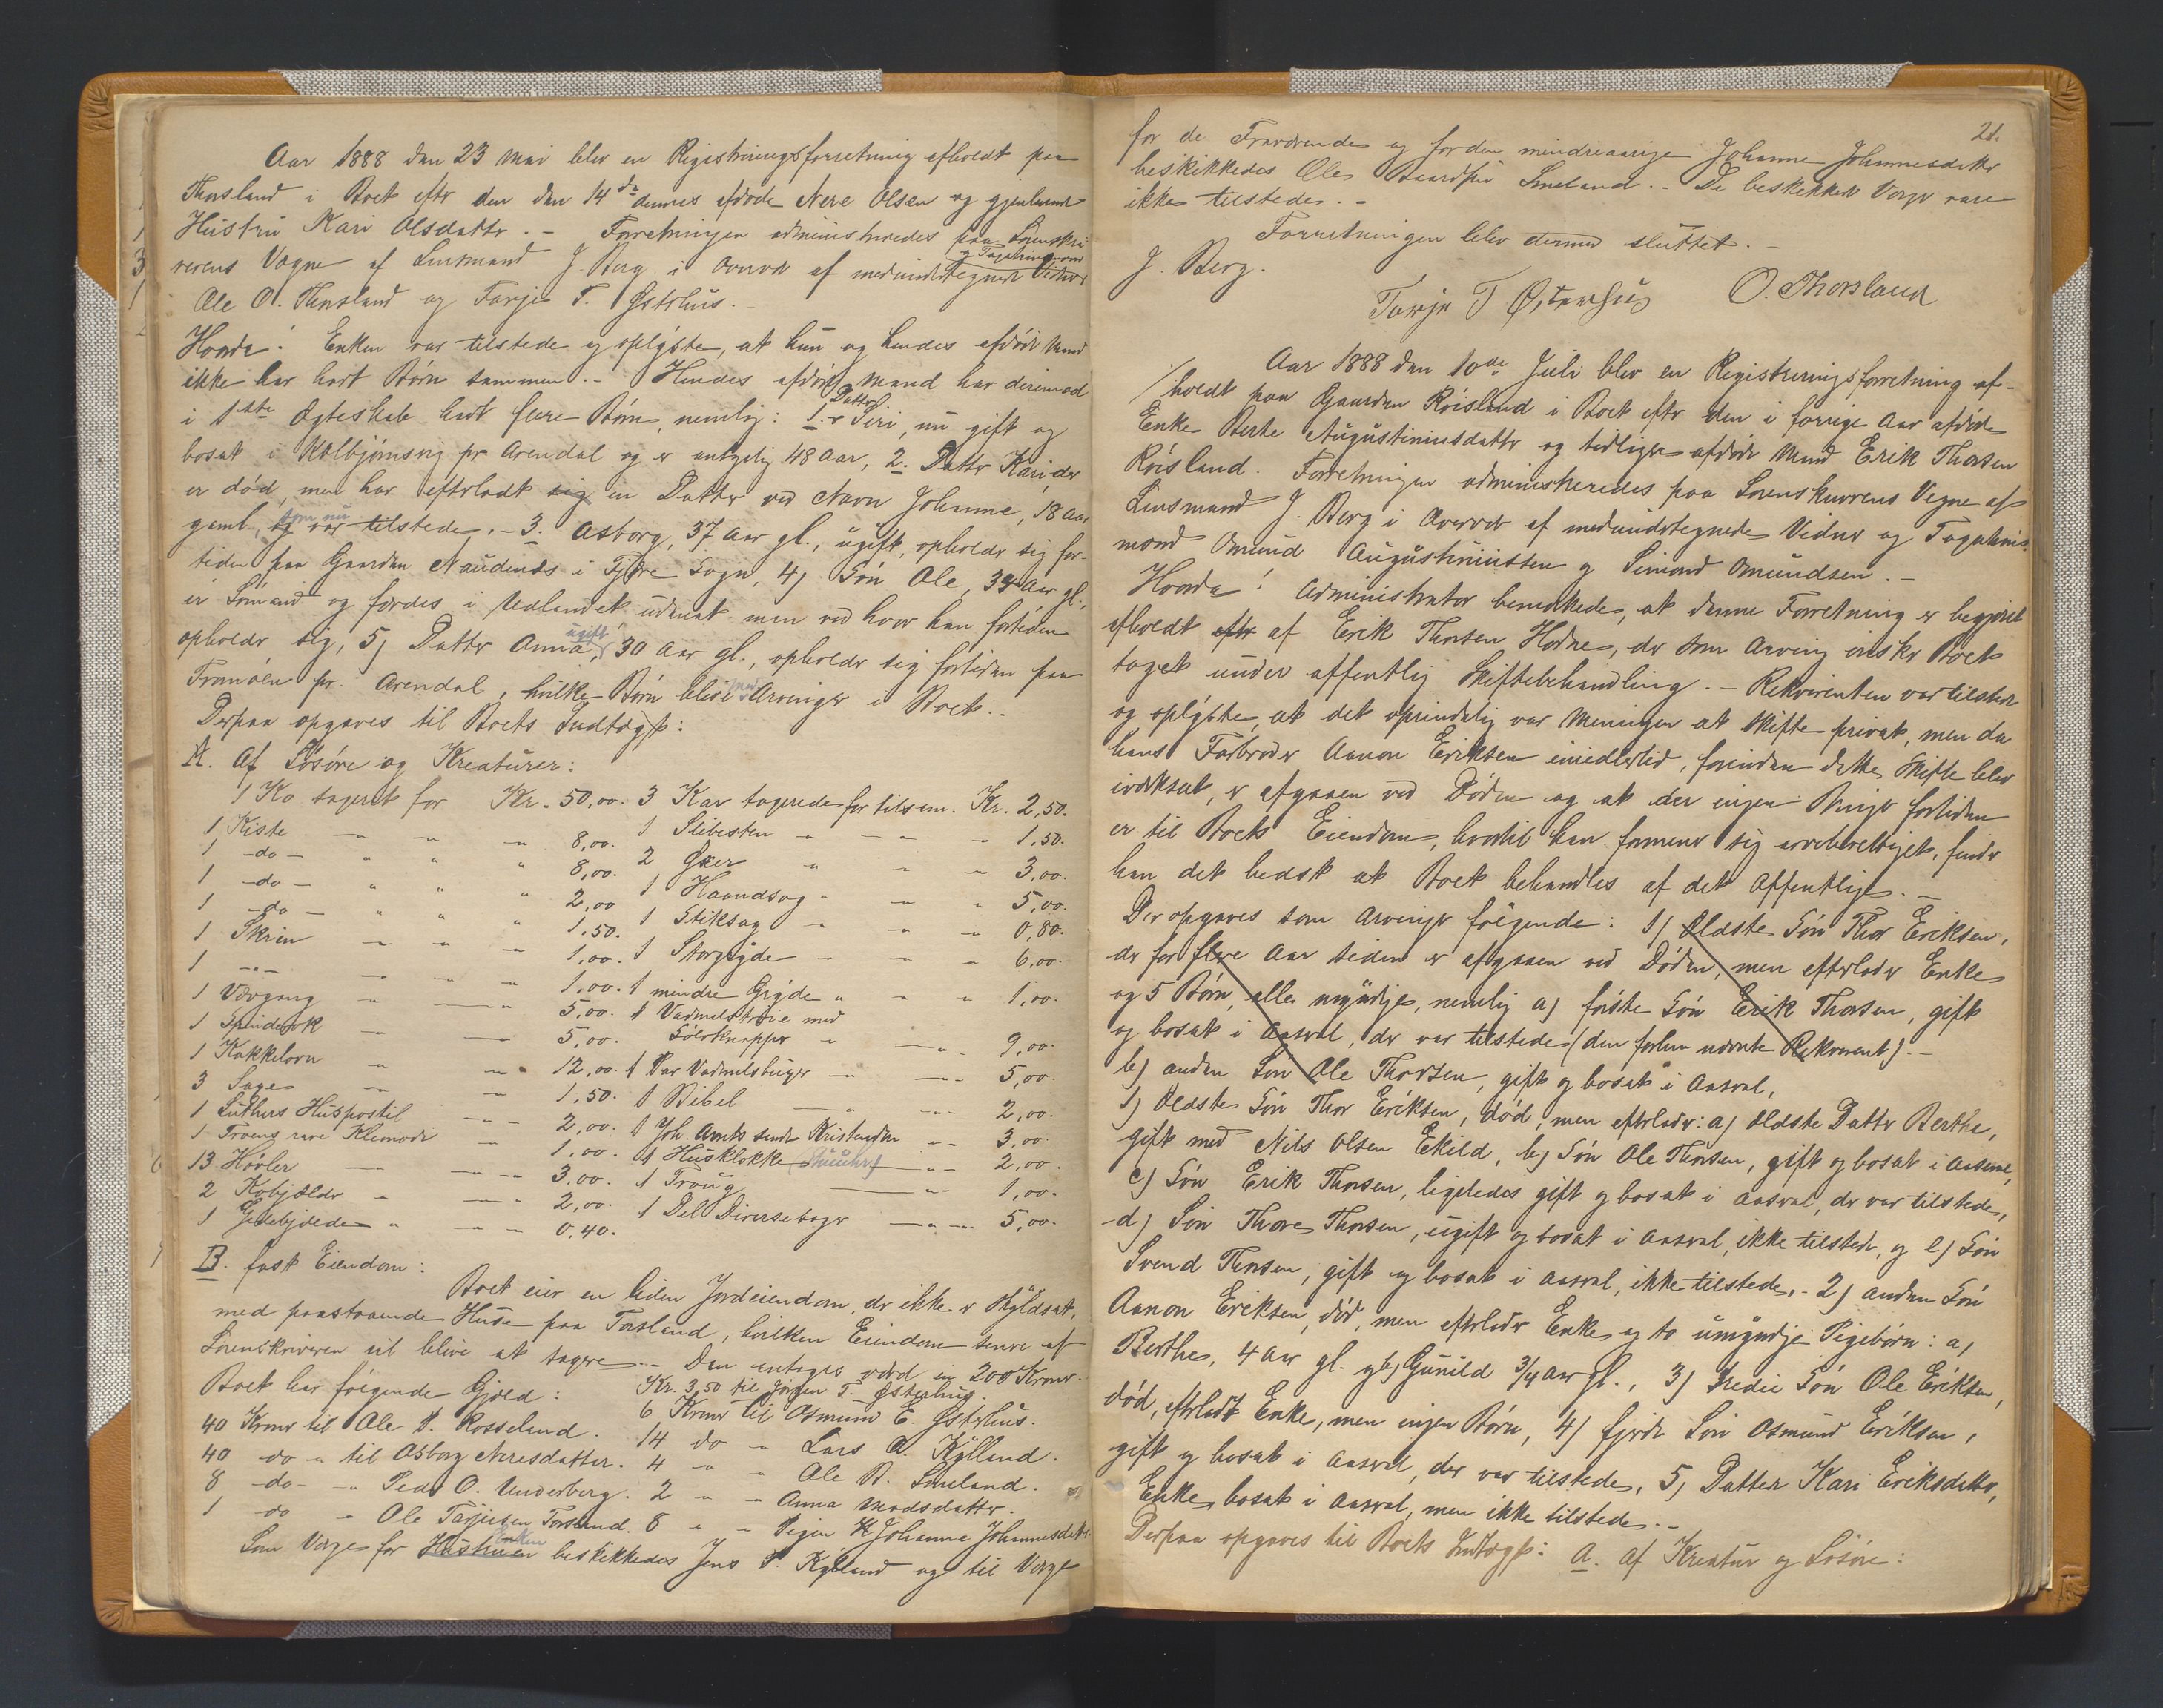 Aar 1888 den 23 Mai blev en Registreringsforretning afholdt paa
Thorsland i Boet efter den den 14de dennes afdøde Nere Olsen og gjenlevende
Hustru Kari Olsdatter. - Forretningen administreredes paa Sorenskri
verens Vegne af Lensmand J. Berg i Overvær af medundertegnede Vidner
og Taxationsmænd
Ole O. Thorsland og Tarje T. Østerhus. -
Hvorda: Enken var tilstede og oplyste, at hun og hendes afdøde Mand
ikke har havt Børn sammen. - Hendes afdøde Mand har derimod
i 1ste Ægteskab havt flere Børn, nemlig: 1. Datter Siri, nu gift og
bosat i Kolbjørnsvig pr Arendal og er antagelig 48 Aar, 2. Datter Kari, der
er død, men har efterladt sig en Datter ved Navn Johanne, 18 Aar
gaml, som nu var tilstede. - 3. Asborg, 37 Aar gl., ugift, opholder sig for-
tiden paa Gaarden Naudenes i Fjære Sogn, 4) Søn Ole, 34 Aar gl.,
er Sømand og færdes i Udlandet uden at man ved hvor han fortiden
opholder sig, 5) Datter Anna, ugift, 30 Aar gl., opholder sig fortiden paa
Tromøen pr. Arendal, hvilke Børn blive Arvinger i Boet. -
Derpaa opgaves til Boets Indtægt:
A. Af Løsøre og Kreaturer:
1 Ko taxeret for Kr. 50,00. 3 Kar taxerede for tilsam. Kr. 2,50.
1 Kiste - " - 8,00. 1 Slibesten - " - 1,50.
1 -do- " " " 8,00. 2 Øxer " - - 3,00.
1 -do- " " " 2,00 1 Haandsag " - " 5,00.
1 -do- " " " 1,50. 1 Stiksag - " - 0,80.
1 Skrin - - - 1,00. 1 Storgryde - - " 6,00.
1 -"- - - - 1,00. 1 mindre Gryde " - " 1,00.
1 Vævgang - - 5,00. 1 Vadmelstrøie med
1 Spinderok - - 5,00. Sølvknapper " - " 9,00.
1 Kakkelovn " - " 12,00. 1 Par Vadmelsbuxer - - 5,00.
3 Sage - - 1,50. 1 Bibel - " - 2,00.
1 Luthers Huspostil - - 2,00. 1 Joh. Arnts sande Kristendom - - 3,00.
1 Troens rare Klenodie - 1,00. 1 Husklokke (Stueuhr) " - 2,00.
13 Høvler - - - 3,00. 1 Traug - " - 1,00.
2 Kobjælder " - " 2,00. 1 Del Diversesager - " - 5,00.
1 Gedebjælde " - - 0,40.
B. fast Eiendom:
Boet eier en liden Jordeiendom, der ikke er skyldsat,
med paastaaende Huse paa Torsland, hvilken Eiendom senere af
Sorenskriveren vil blive at taxere. - Den antages værd en 200 Kroner.
Boet har følgende Gjæld: Kr. 3,50 til Jørgen T. Østerhus.
40 Kroner til Ole T. Rosseland. 6 Kroner til Osmund E. Østerhus.
40 do - til Asborg Neresdatter. 14 do - Lars A. Kylland.
8 -do- - Peder O. Underberg. 4 - " - Ole B. Smeland.
1 do - Ole Tarjeisen Torsland. 2 " - Anna Madsdatter.
8 " - Pigen Johanne Johannesdatter.
Som Verge for Hustruen Enken beskikkedes Jens P. Kylland og til Verge
21.
for de Fraværende og for den mindreaarige Johanne Johannesdatter
beskikkedes Ole Smeland. - De beskikkede Verger vare
ikke tilstede. -
Forretningen blev dermed sluttet. -
J. Berg.
Tarje T Østerhus O. Thorsland
Aar 1888 den 10de Juli blev en Registreringsforretning af-
holdt paa Gaarden Róisland i Boet efter den i forrige Aar afdøde
Enke Berte Augustiniusdatter og tidligere afdøde Mand Erik Thorsen
Róisland. Forretningen administreredes paa Sorenskriverens Vegne af
Lensmand J. Berg i Overvær af medundertegnede Vidner og Taxations-
mænd Omund Augustiniussen og Simond Omundsen. -
Hvorda: Administrator bemærkede, at denne Forretning er begjært
afholdt efter af Erik Thorsen Hodne, der som Arving ønsker Boet
taget under offentlig Skiftebehandling. - Rekvirenten var tilstede
og oplyste, at det oprindelig var Meningen at skifte privat, men da
hans Farbroder Aanon Eriksen imidlertid, forinden dette Skifte blev
iværksat, er afgaaen ved Døden og at der ingen Penge fortiden
er til Boets Eiendom, hvortil han formener sig arveberettiget, finder
han det bedst at Boet behandles af det Offentlige. -
Der opgaves som Arvinger følgende: 1) Ældste Søn Thor Eriksen,
der for flere Aar siden er afgaaen ved Døden, men efterlader Enke
og 5 Børn, alle myndige, nemlig a) første Søn Erik Thorsen, gift
og bosat i Aaseral, der var tilstede (den forhen nævnte Rekvirent). -
b) anden Søn Ole Thorsen, gift og bosat i Aaseral,
1) Ældste Søn Thor Eriksen, død, men efterlader: a) Ældste Datter Berthe,
gift med Nils Olsen Ekild, b) Søn Ole Thorsen, gift og bosat i Aaseral,
c) Søn Erik Thorsen, ligeledes gift og bosat i Aaseral, der var tilstede,
d) Søn Thore Thorsen, ugift og bosat i Aaseral, ikke tilstede, og e) Søn
Svend Thorsen, gift og bosat i Aaseral, ikke tilstede. - 2) anden Søn
Aanon Eriksen, død, men efterlader Enke og to umyndige Pigebørn: a)
Berthe, 4 Aar gl. og b) Gunild 3/4 Aar gl., 3) tredie Søn Ole Eriksen,
død, efterladt Enke, men ingen Børn, 4) fjerde Søn Osmund Eriksen,
gift og bosat i Aaseral, der var tilstede, 5) Datter Kari Eriksdatter,
Enke, bosat i Aaseral, men ikke tilstede. -
Derpaa opgaves til Boets Indtægt: A. Af Kreatur og Løsøre: